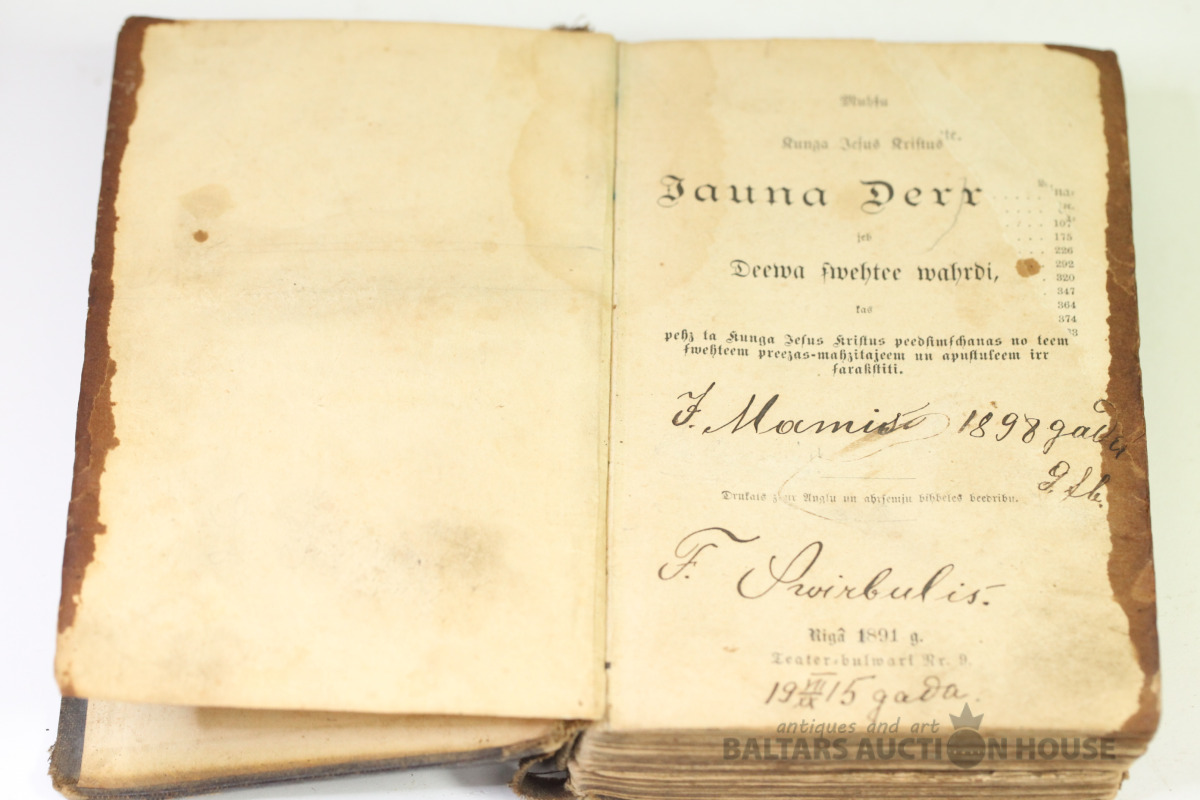 Muhsu
Kunga Jesus Kristus
Jauna Derr
jeb
Deewa swehtee wahrdi,
107
175
226
292
320
347
364
374
kas
pehz ta Kunga Jesus Kristus peedsimschanas no teem
swehteem preezas-mahzitajeem un apustuleem irr
sarakstiti.
J. Mamis 1898 gada
Drukats zaur Anglu un ahrsemju bihbeles beedribu.
F. Swirbulis.
Rigâ 1891 g.
Teater-bulwari Nr. 9.
19 VII/IX 15 gada.
antiques and art
BALTARS AUCTION HOUSE